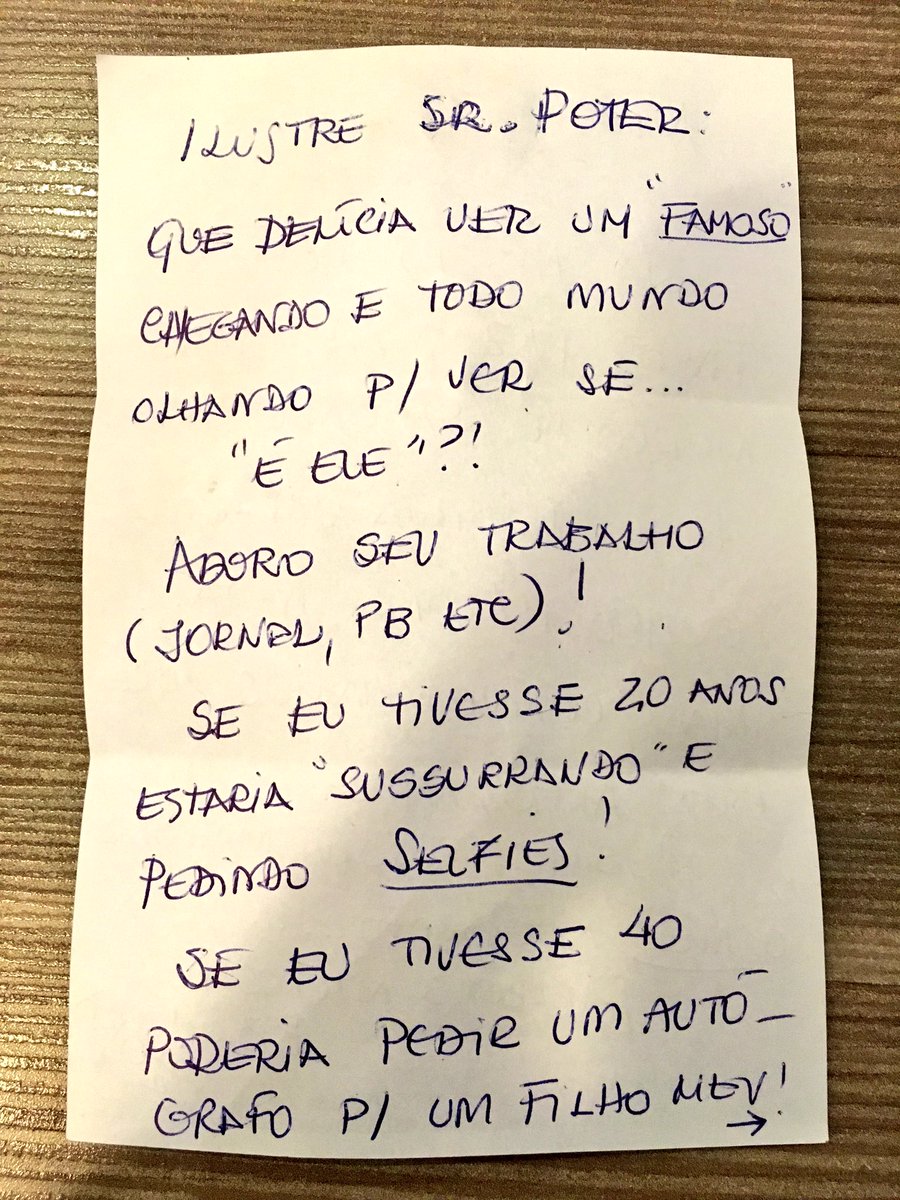 ILUSTRE SR. POTER:
QUE DELÍCIA VER UM "FAMOSO"
CHEGANDO E TODO MUNDO
OLHANDO P/ VER SE...
"É ELE"?!
ADORO SEU TRABALHO
(JORNAL, PB ETC)!
SE EU TIVESSE 20 ANOS
ESTARIA "SUSSURRANDO" E
PEDINDO SELFIES!
SE EU TIVESSE 40
PODERIA PEDIR UM AUTÓ-
GRAFO P/ UM FILHO MEU!
→